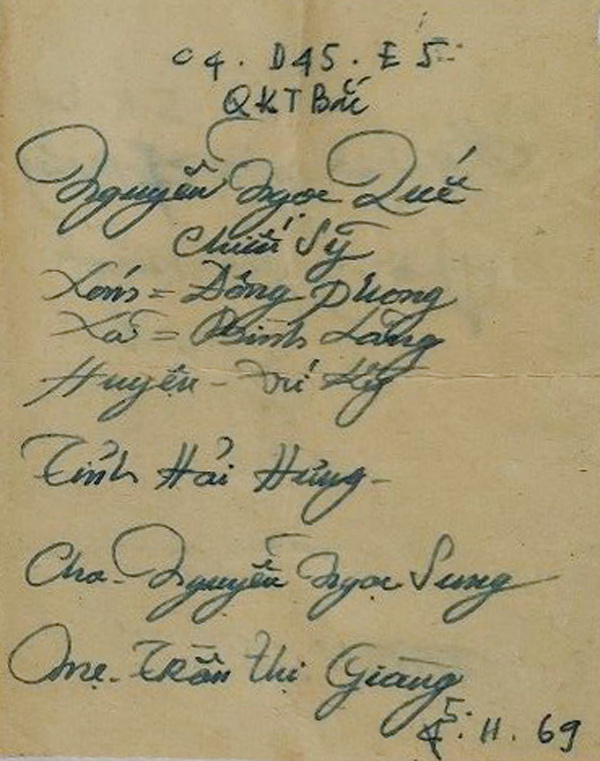 C4. D45. E5.
QKT Bắc
Nguyễn Ngọc Quế
Chiến Sỹ
Xóm = Đông Phong
Xã = Bình Lãng
Huyện - Tứ Kỳ
Tỉnh Hải Hưng -
Cha - Nguyễn Ngọc Sung
Mẹ - Trần thị Giàng
5. 11. 69